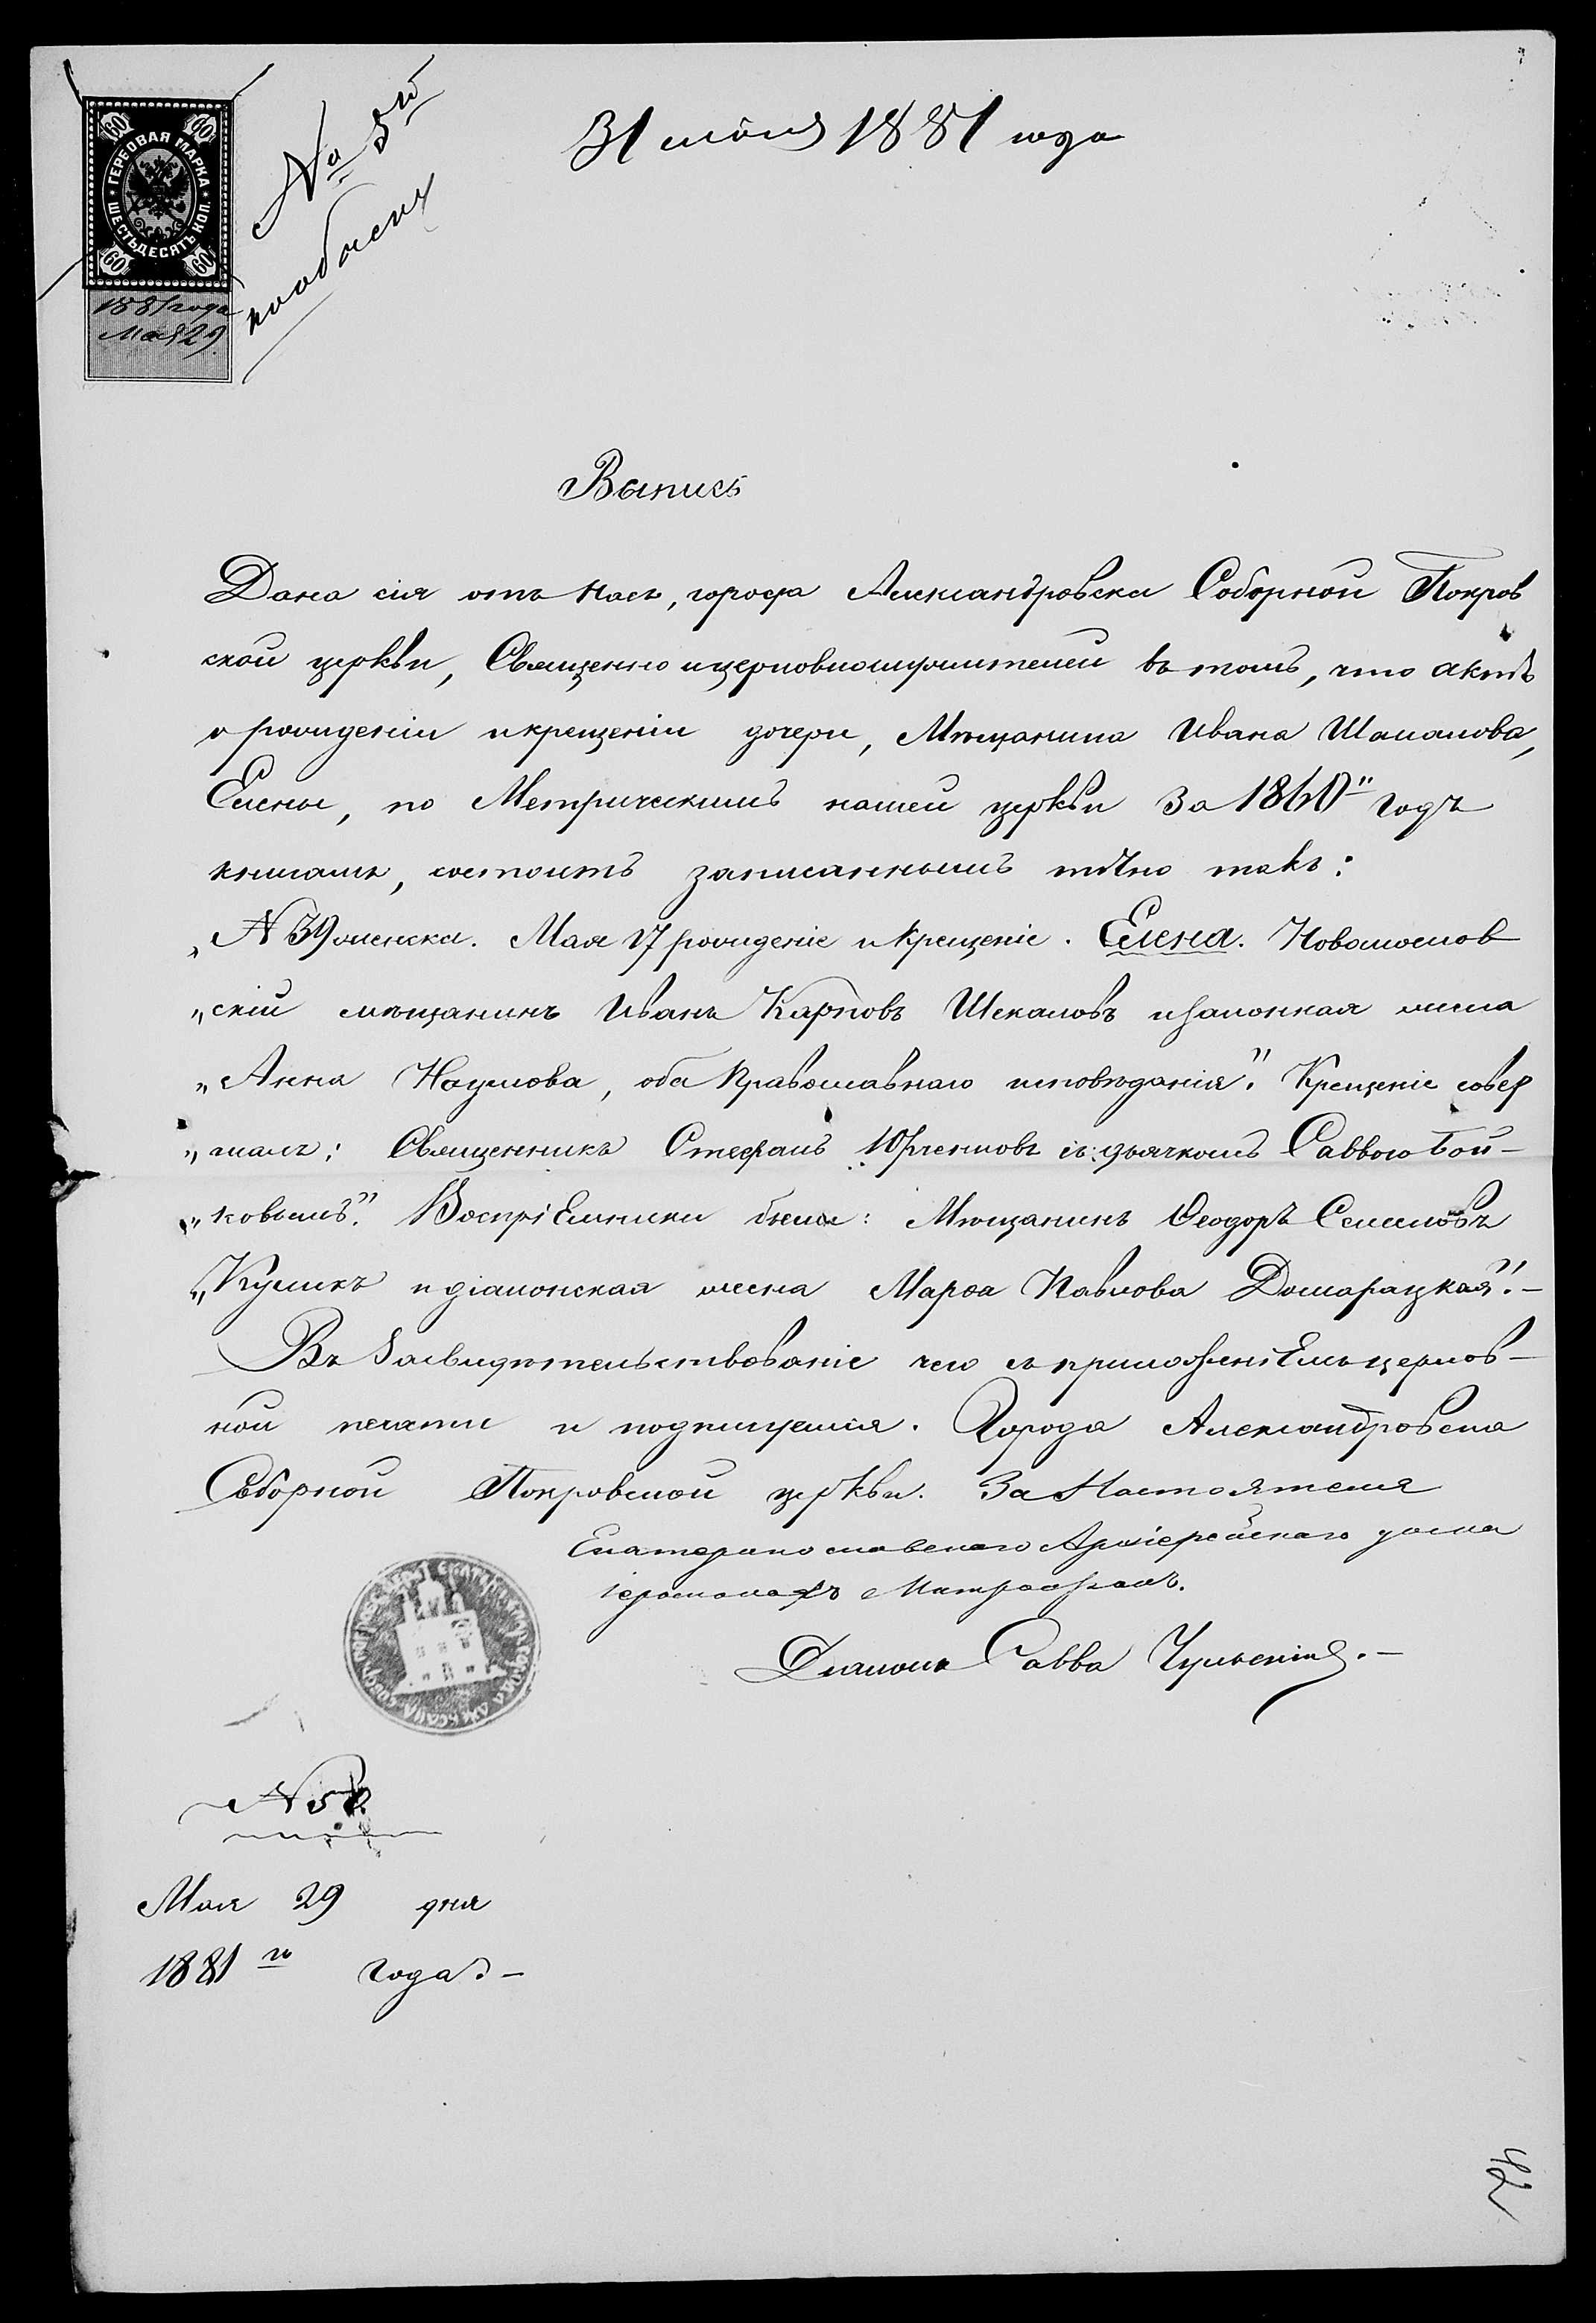 31 мая 1881 года
60 60
ГЕРБОВАЯ МАРКА
ШЕСТЬДЕСЯТЪ КОП.
60 60
1881 года
Мая 29
На 5й
Выпись
Дана сія отъ насъ, города Александровска Соборной Покров
ской церкви, Священно и церковнослужителей въ томъ, что актъ
о рожденіи и крещеніи дочери, Мѣщанина Ивана Шакалова,
Елены, по Метрическимъ нашей церкви за 1860" годъ
книгамъ, состоитъ записаннымъ тѣчно такъ:
„N 39 женска. Мая 17 рожденіе и крещеніе. Елена. Новомосков
„скій мѣщанинъ Иванъ Карповъ Шекаловъ и законная жена
„Анна Наумова, оба Православнаго исповѣданія." Крещеніе совер
„шалъ: Священникъ Стефанъ Юрченковъ съ дьячкомъ Саввою Бой-
„ковымъ." ВоспріЕмники были: Мѣщанинъ Ѳеодоръ Семеновъ
„Куликъ и діаконская жена Марѳа Павлова Домарацкая".-
Въ Засвидѣтельствованіе чего съ приложеніЕмъ церков-
ной печати и подпишемся. Города Александровска
Соборной Покровской церкви. За Настоятеля
Екатеринославскаго Архіерейскаго дома
іеромонахъ Митрофанъ.
Діаконъ Савва
N 52
Мая 29 дня
1881го года.-
42